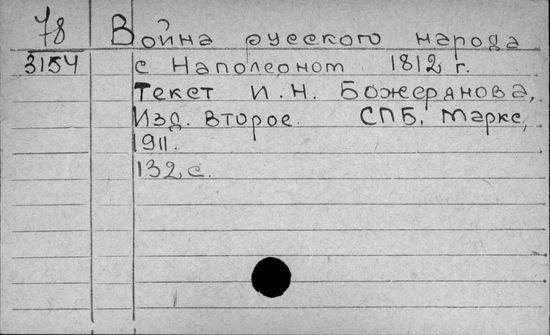 78
3154
Война русского народа
с Наполеоном 1812 г.
Текст И.Н. Божерянова,
Изд. второе. СПБ, Маркс,
1911.
132 с.